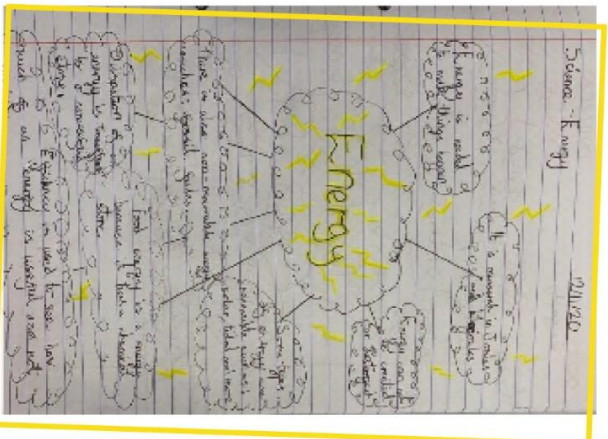 Science - Energy
12/11/20
Energy
Energy is needed
to make things happen
It is measured in Joules
and kilojoules
Energy can not
be created
or destroyed
Some types
of energy are
renewable
solar, tidal and more
There is also non-renewable energy
Food energy is a energy
because it has a chemical
store
Dissipation of
energy is
Efficiency is used to see how
much of an energy is useful and not